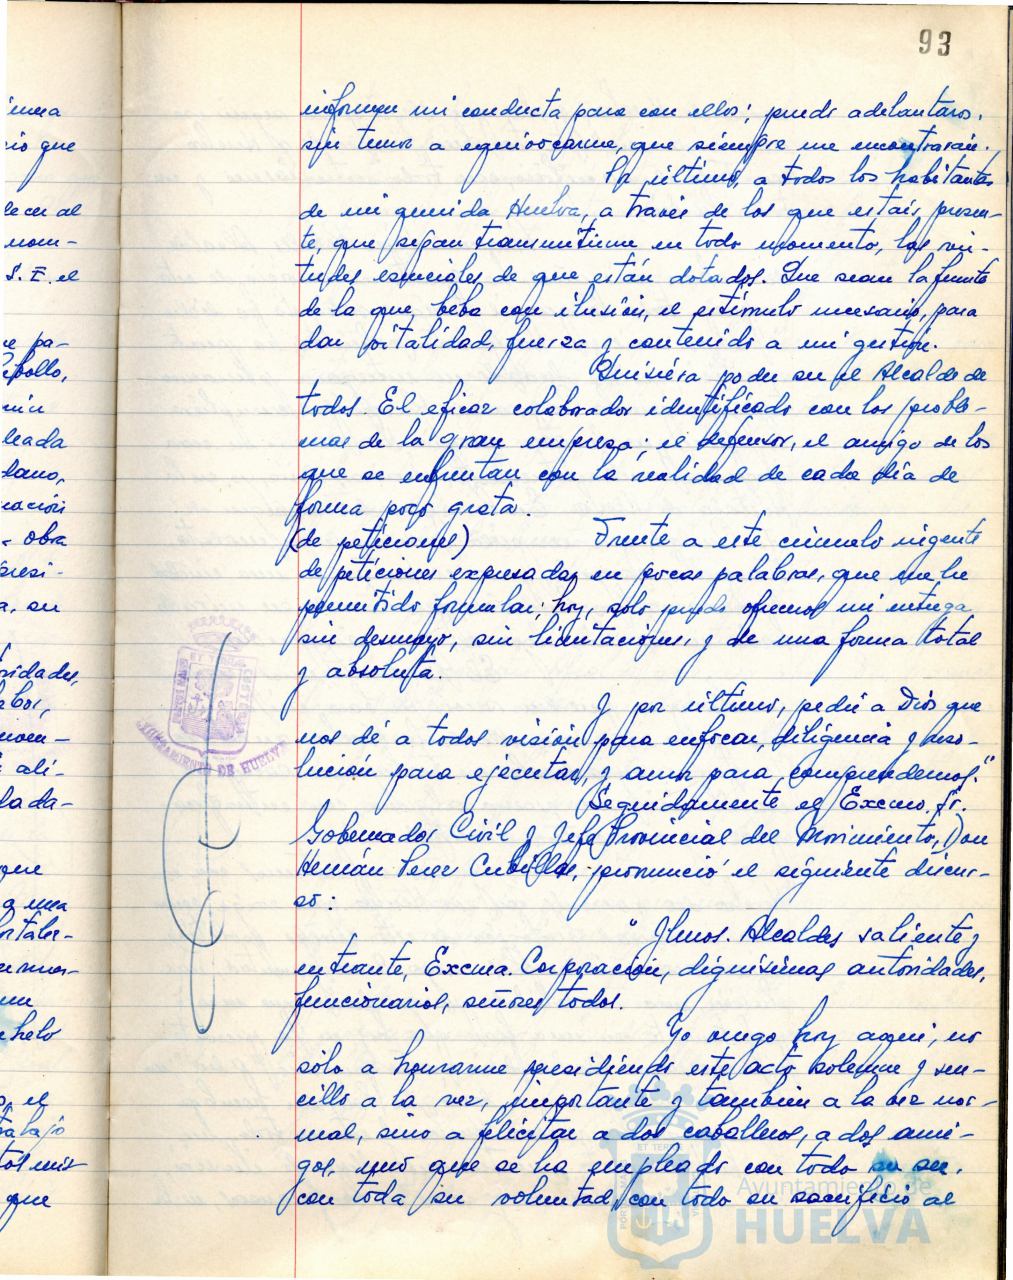 93
informan mi conducta para con ellos; puedo adelantaros,
sin temor a equivocarme, que siempre me encontrarán.
Por último, a todos los habitantes
de mi querida Huelva, a través de los que estáis presen-
te, que sepan transmitirme en todo momento, las vir-
tudes esenciales de que están dotados. Que sean la fuente
de la que, beba con ilusión, el estímulo necesario, para
dar vitalidad, fuerza y contenido a mi gestión.
Quisiera poder ser el Alcalde de
todos. El eficaz colaborador identificado con los proble-
mas de la gran empresa; el defensor, el amigo de los
que se enfrentan con la realidad de cada día de
forma poco grata.
(de peticiones) Frente a este cúmulo ingente
de peticiones expresadas en pocas palabras, que me he
permitido formular; hoy, solo puedo ofreceros mi entrega
sin desmayo, sin limitaciones, y de una forma total
y absoluta.
Y por último, pedir a Dios que
nos dé a todos visión para enfocar, diligencia y reso-
lución para ejecutar, y amor para comprendernos."
Seguidamente el Excmo. Sr.
Gobernador Civil y Jefe Provincial del Movimiento, Don
Hernán Perez Cubillas, pronunció el siguiente discur-
so:
" Ilmos. Alcaldes saliente y
entrante, Excma. Corporación, dignísimas autoridades,
funcionarios, señores todos.
Yo vengo hoy aquí, no
sólo a honrarme presidiendo este acto solemne y sen-
cillo a la vez, importante y también a la vez nor-
mal, sino a felicitar a dos caballeros, a dos ami-
gos, uno que se ha empleado con todo su ser,
con toda su voluntad, con todo su sacrificio al
AYUNTAMIENTO DE HUELVA
Ayuntamiento de
HUELVA